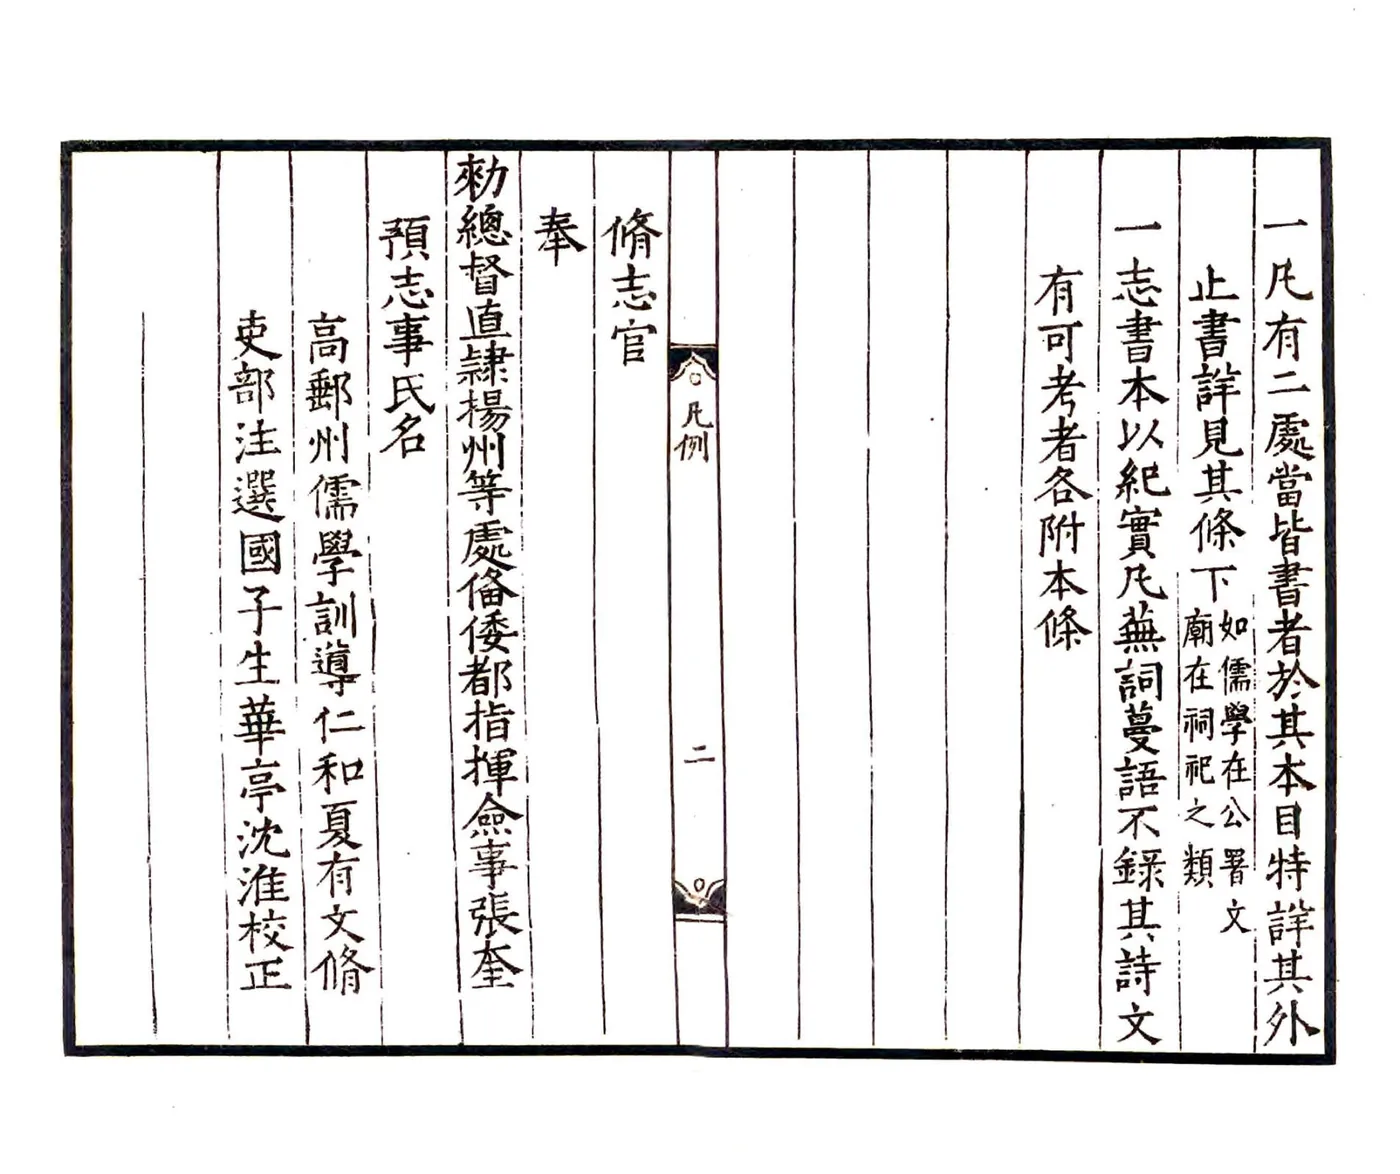 一凡有二處當皆書者於其本目特詳其外
止書詳見其條下如儒學在公署文
廟在祠祀之類
一志書本以紀實凡蕪詞蔓語不錄其詩文
有可考者各附本條
凡例
二
脩志官
奉
勑總督直隷楊州等處俻倭都指揮僉事張奎
預志事氏名
高郵州儒學訓導仁和夏有文脩
吏部注選國子生華亭沈淮校正